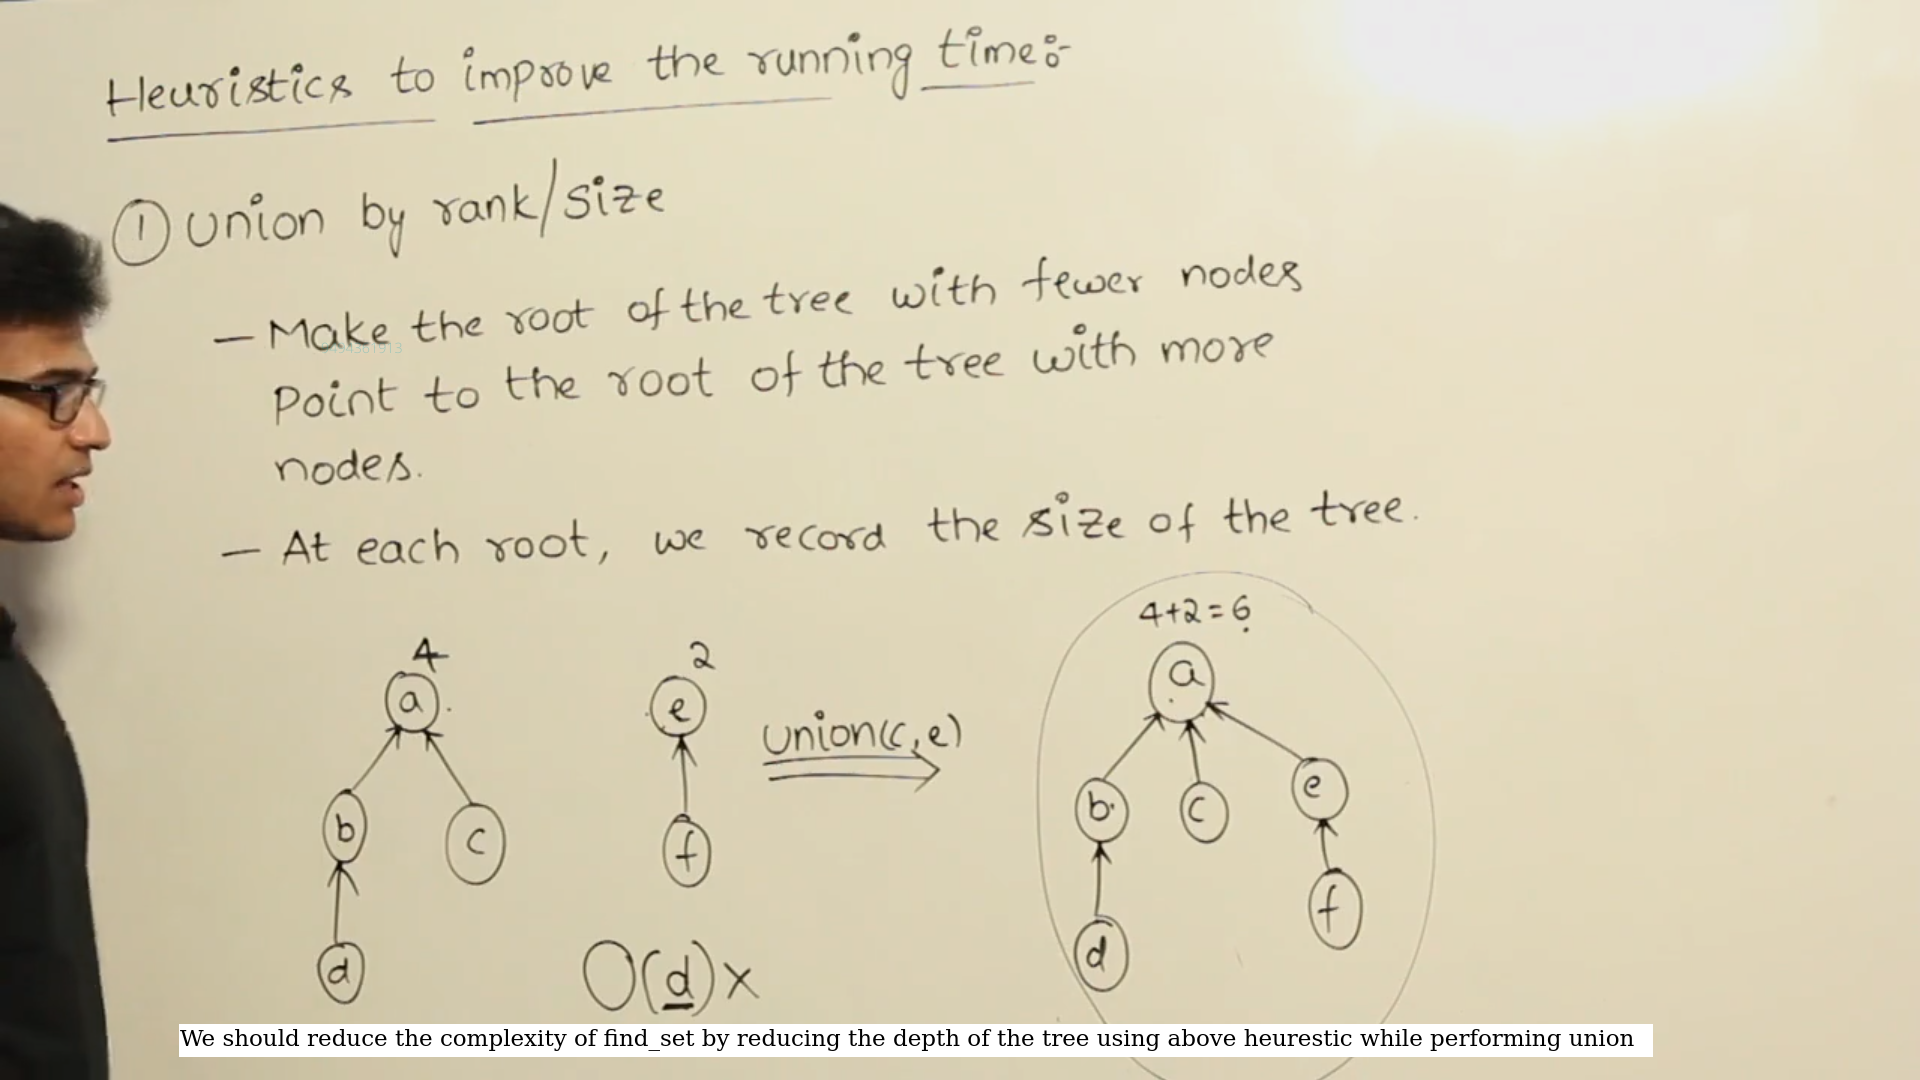 Heuristics to improve the running time:-
① Union by rank/size
- Make the root of the tree with fewer nodes
Point to the root of the tree with more
nodes.
- At each root, we record the size of the tree.
4 2 4+2=6
a e a
Union(c,e)
b c f b c e
d O(d)× d f
We should reduce the complexity of find_set by reducing the depth of the tree using above heurestic while performing union